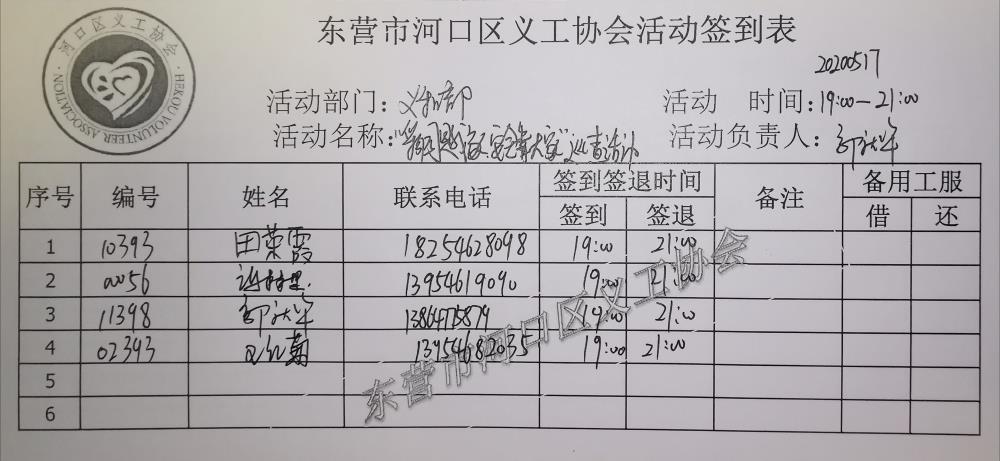 东营市河口区义工协会活动签到表
河口区义工协会
HEKOU VOLUNTEER ASSOCIATION
20200517
活动部门：义工部 活动 时间：19:00—21:00
活动名称：安全靠大家"巡查活动 活动负责人：
序号 编号 姓名 联系电话 签到签退时间 备注 备用工服
签到 签退 借 还
1 10393 田荣霞 18254628098 19:00 21:00
2 00056 13954619090 19:00 21:00
3 11398 19:00 21:00
4 02393 13954682035 19:00 21:00
5
6
东营市河口区义工协会